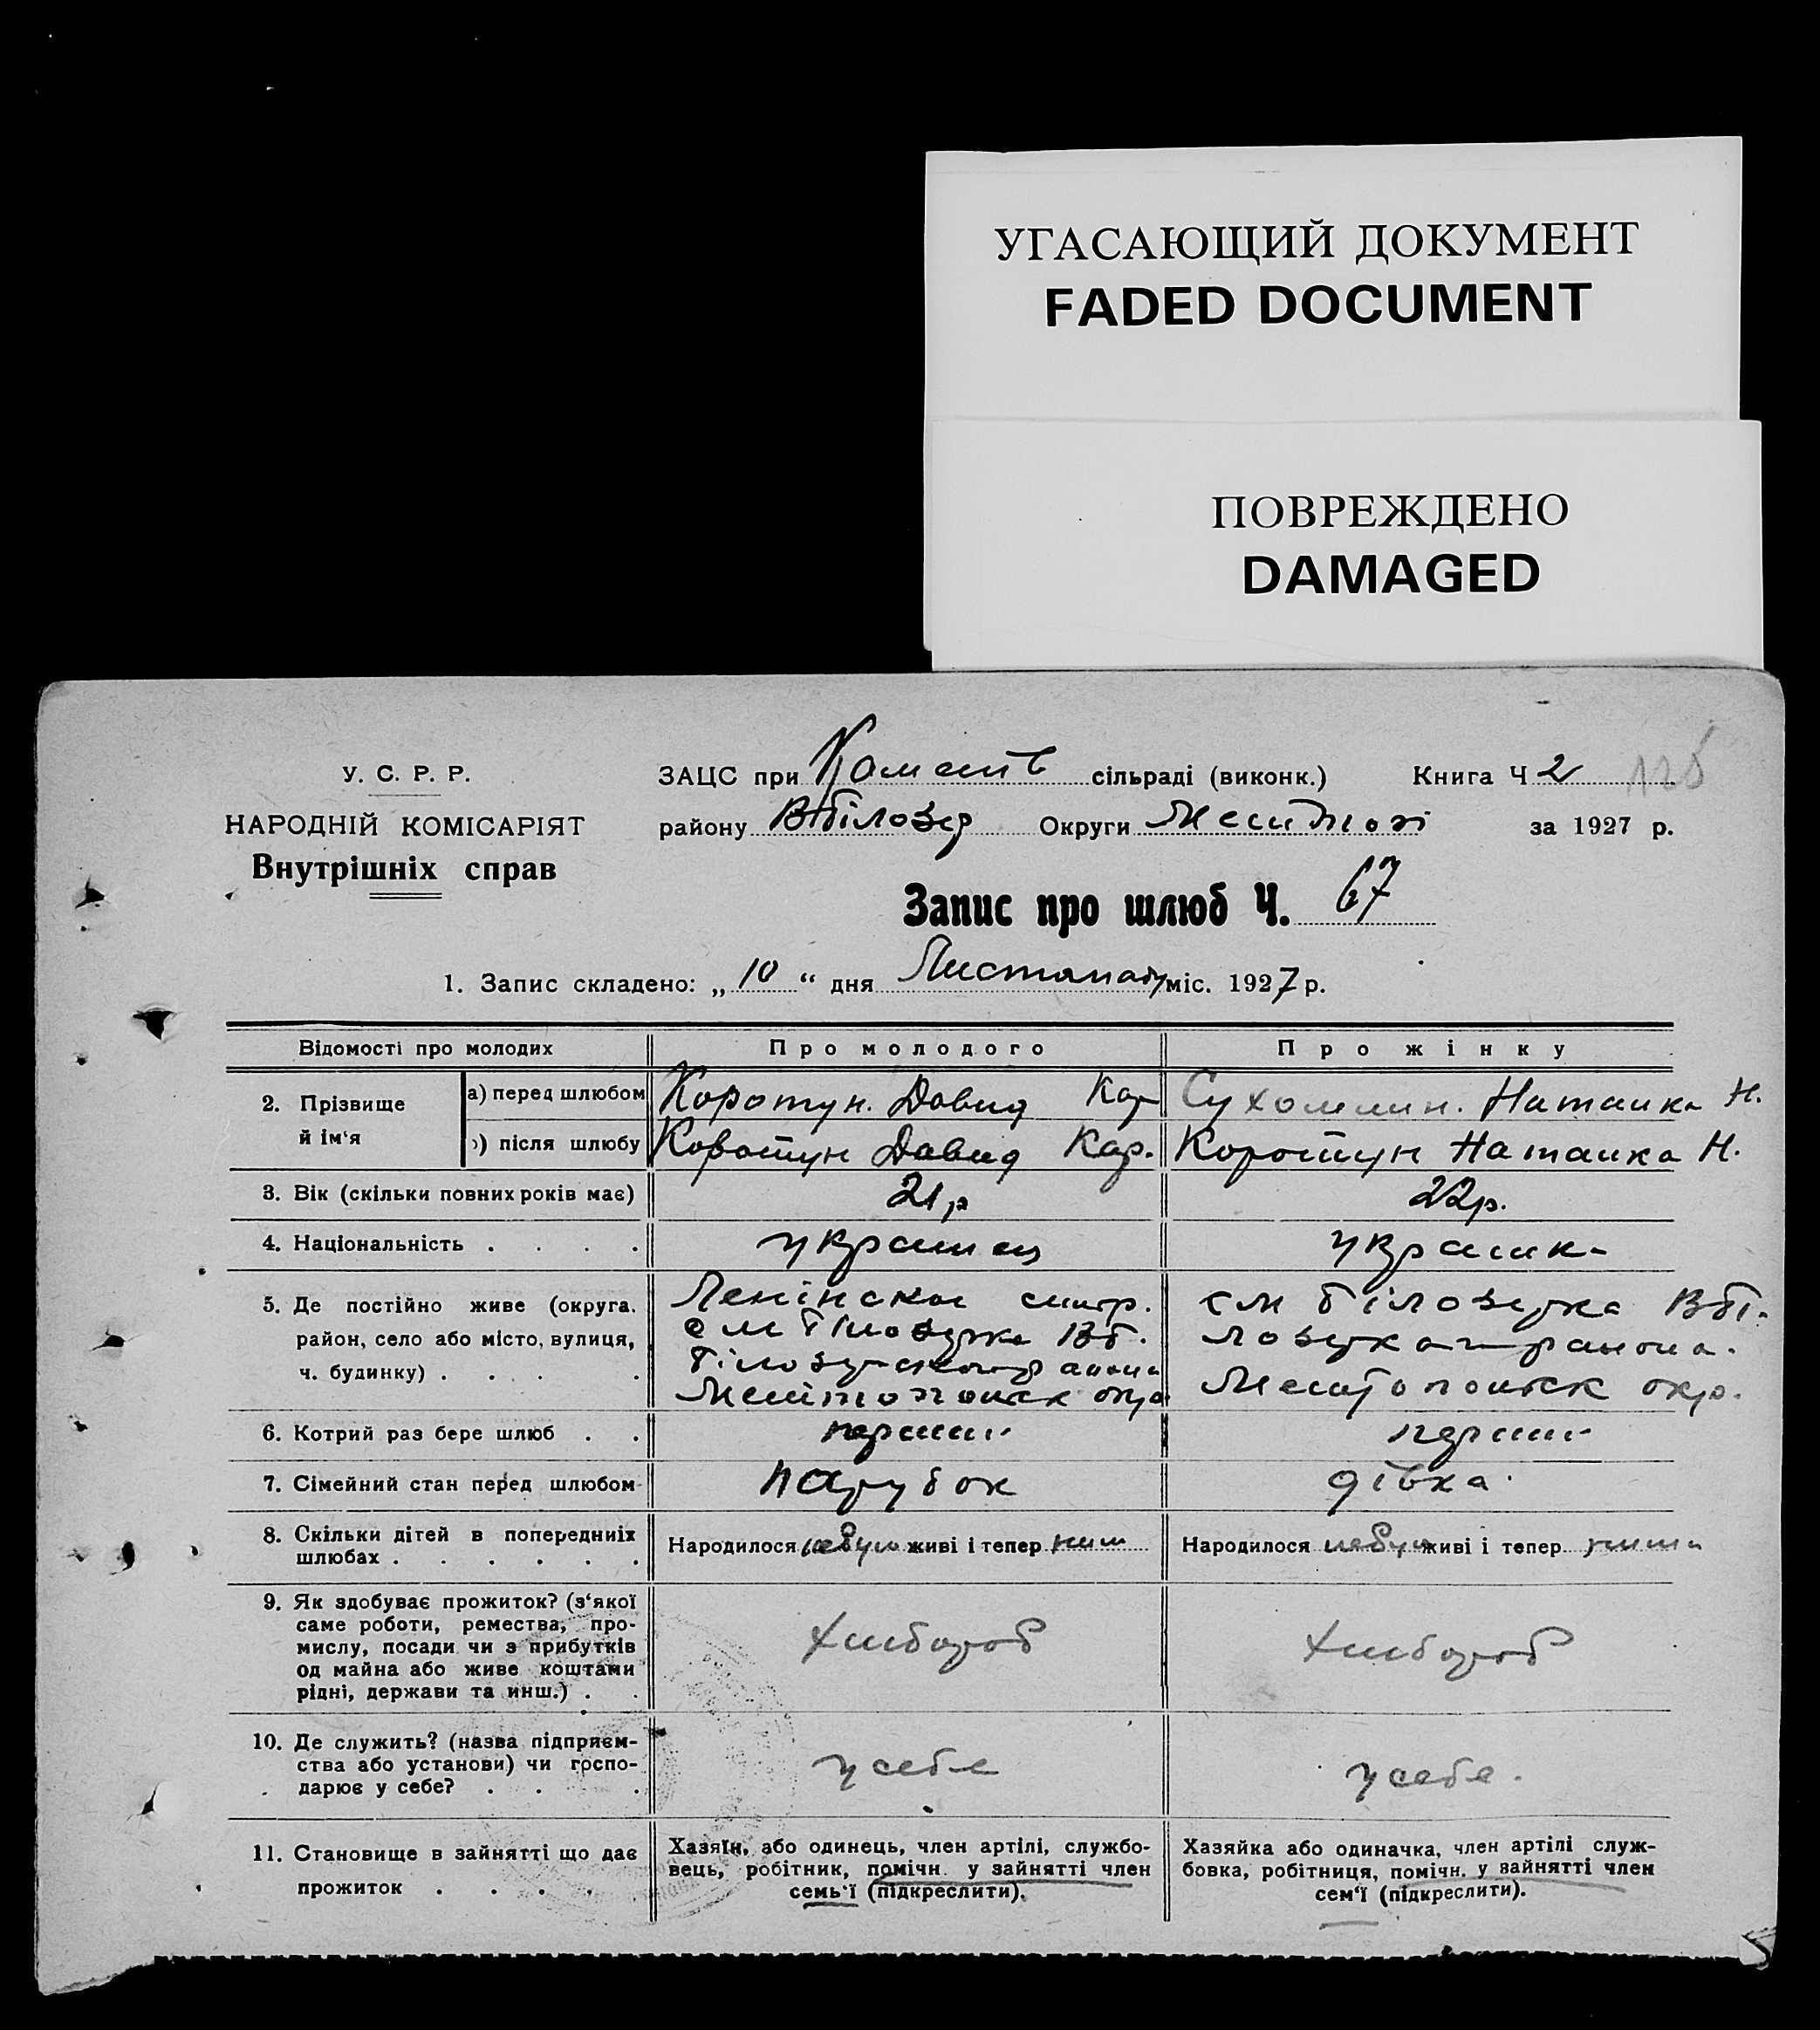 УГАСАЮЩИЙ ДОКУМЕНТ
FADED DOCUMENT
ПОВРЕЖДЕНО
DAMAGED
У. С. Р. Р.
НАРОДНІЙ КОМІСАРІЯТ
Внутрішніх справ
ЗАЦС при сільраді (виконк.) Книга Ч 2
району Вбілозер Округи за 1927 р.
Запис про шлюб Ч. 67
1. Запис складено: „ 10 “ дня Листопаду міс. 1927 р.
Відомості про молодих Про молодого Про жінку
2. Прізвище й ім‘я
а) перед шлюбом Коротун. Давид Кар Сухомлин. Наталка Н.
) після шлюбу Коротун Давид Кар. Коротун Наталка Н.
3. Вік (скільки повних років має) 21 р 22 р.
4. Національність . . . . украинец украинк
5. Де постійно живе (округа, район, село або місто, вулиця, ч. будинку) . . . .
Ленінскої
Вб.
окр
см білозерка Вбі-
лозерка района.
окр.
6. Котрий раз бере шлюб . . перший перший
7. Сімейний стан перед шлюбом парубок дівка.
8. Скільки дітей в попередніх шлюбах . . . . . .
Народилося небуло живі і тепер Народилося небул живі і тепер
9. Як здобуває прожиток? (з‘якої
саме роботи, ремества, про-
мислу, посади чи з прибутків
од майна або живе коштами
рідні, держави та инш.) . .
хлібороб хлібороб
10. Де служить? (назва підприєм-
ства або установи) чи госпо-
дарює у себе? . . .
у себе у себе.
11. Становище в зайнятті що дає
прожиток . . . .
Хазяїн, або одинець, член артілі, службо-
вець, робітник, помічн. у зайнятті член
семь‘ї (підкреслити).
Хазяйка або одиначка, член артілі служ-
бовка, робітниця, помічн. у зайнятті член
сем‘ї (підкреслити).